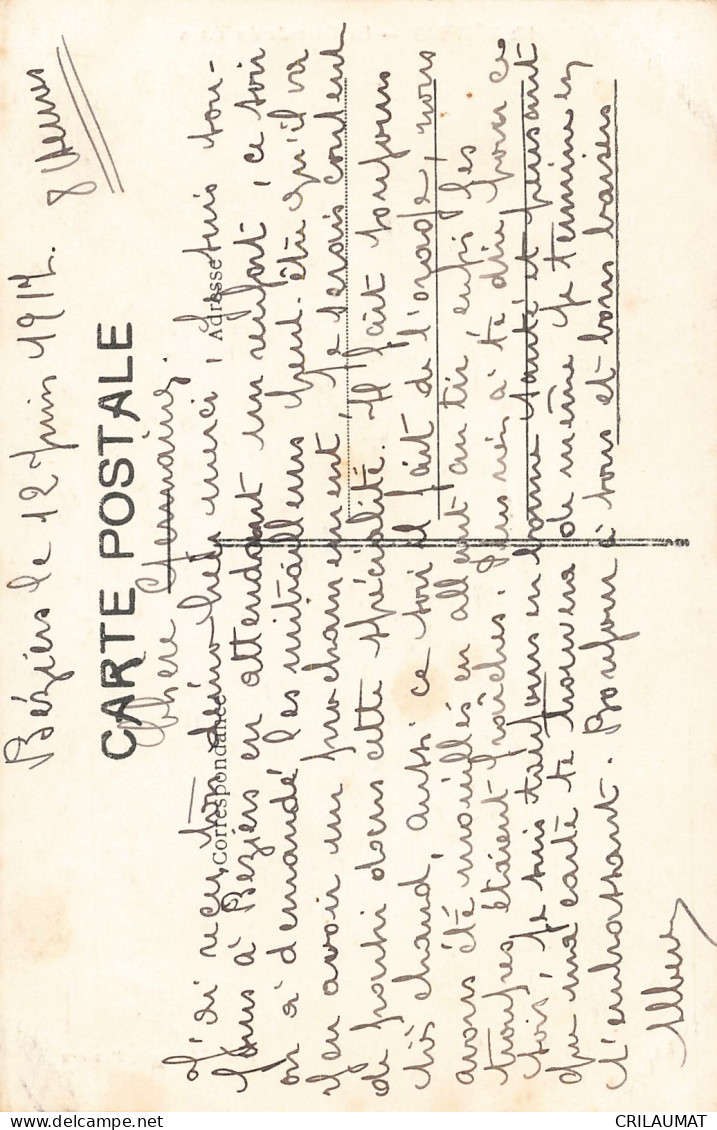 Béziers le 12 Juin 1917. 8 heures
CARTE POSTALE
Chère Germaine.
Correspondance Adresse
J'ai reçu ton mot hier merci, Je suis tou-
jours à Béziers en attendant un renfort, ce soir
on a demandé les mitrailleurs peut-être qu'il va
y en avoir un prochainement, je serais content
de partir dans cette spécialité. Il fait toujours
très chaud, aussi ce soir il fait de l'orage, nous
avons été mouillés en allant au tir enfin les
troupes étaient fraîches. Plus rien à te dire pour ce
soir, Je suis toujours en bonne santé et pensant
que ma carte te trouvera de même Je termine en
t'embrassant. Bonjour à tous et bons baisers
Albert
CRILAUMAT